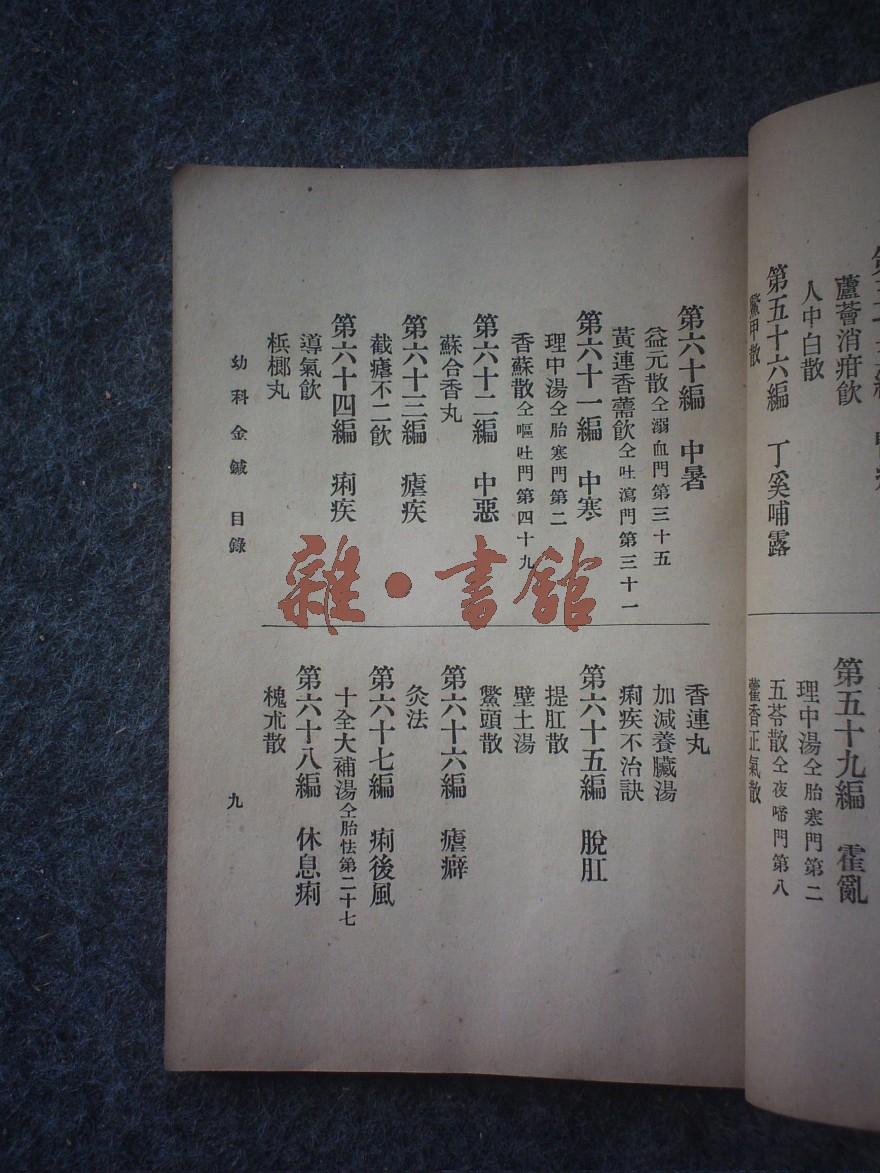 蘆薈消疳飲
人中白散
第五十六編 丁奚哺露
鱉甲散
第五十九編 霍亂
理中湯仝胎寒門第二
五苓散仝夜啼門第八
藿香正氣散
第六十編 中暑
益元散仝溺血門第三十五
黃連香薷飲仝吐瀉門第三十一
第六十一編 中寒
理中湯仝胎寒門第二
香蘇散仝嘔吐門第四十九
第六十二編 中惡
蘇合香丸
第六十三編 瘧疾
截瘧不二飲
第六十四編 痢疾
導氣飲
梹榔丸
香連丸
加減養臟湯
痢疾不治訣
第六十五編 脫肛
提肛散
壁土湯
鱉頭散
第六十六編 瘧癖
灸法
第六十七編 痢後風
十全大補湯仝胎怯第二十七
第六十八編 休息痢
槐朮散
幼科金鍼 目錄
九
雜·書館